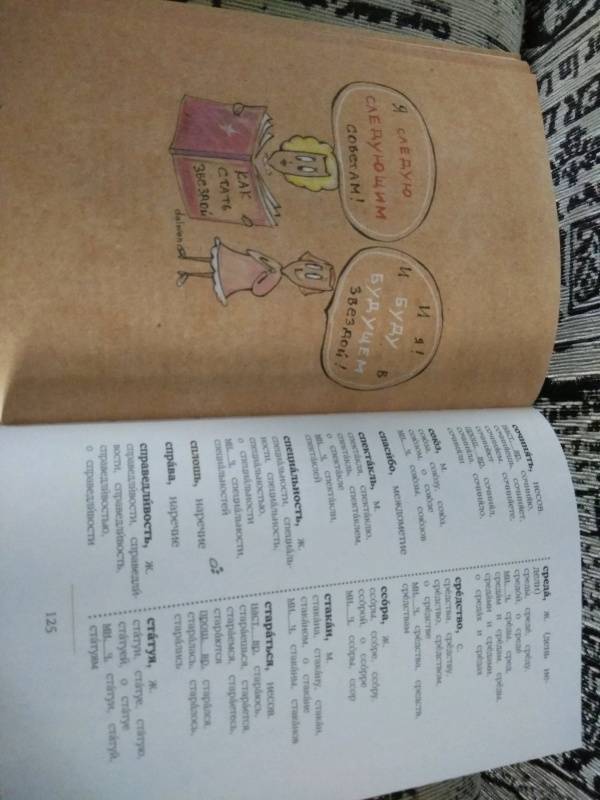 Я СЛЕДУЮ
СЛЕДУЮЩИМ
СОВЕТАМ!
КАК
СТАТЬ
ЗВЕЗДОЙ
И Я!
И БУДУ В
БУДУЩЕМ
ЗВЕЗДОЙ!
сочиня́ть, несов.
наст. вр. сочиня́ю,
сочиня́ешь, сочиня́ет,
сочиня́ем, сочиня́ете,
сочиня́ют
прош. вр. сочиня́л,
сочиня́ла, сочиня́ло,
сочиня́ли
сою́з, м.
сою́за, сою́зу, сою́з,
сою́зом, о сою́зе
мн. ч. сою́зы, сою́зов
спаси́бо, междометие
спекта́кль, м.
спекта́кля, спекта́клю,
спекта́кль, спекта́клем,
о спекта́кле
мн. ч. спекта́кли,
спекта́клей
специа́льность, ж.
специа́льности, специа́ль-
ности, специа́льность,
специа́льностью,
о специа́льности
мн. ч. специа́льности,
специа́льностей
сплошь, наречие
спра́ва, наречие
справедли́вость, ж.
справедли́вости, справедли́-
вости, справедли́вость,
справедли́востью,
о справедли́вости
среда́, ж. (день не-
дели)
среды́, среде́, сре́ду,
средо́й, о среде́
мн. ч. сре́ды, сред,
среда́м и сре́дам, сре́ды,
среда́ми и сре́дами,
о среда́х и сре́дах
сре́дство, с.
сре́дства, сре́дству,
сре́дство, сре́дством,
о сре́дстве
мн. ч. сре́дства, средств,
сре́дствам
ссо́ра, ж.
ссо́ры, ссо́ре, ссо́ру,
ссо́рой, о ссо́ре
мн. ч. ссо́ры, ссор
стака́н, м.
стака́на, стака́ну, стака́н,
стака́ном, о стака́не
мн. ч. стака́ны, стака́нов
стара́ться, несов.
наст. вр. стара́юсь,
стара́ешься, стара́ется,
стара́емся, стара́етесь,
стара́ются
прош. вр. стара́лся,
стара́лась, стара́лось,
стара́лись
ста́туя, ж.
ста́туи, ста́туе, ста́тую,
ста́туей, о ста́туе
мн. ч. ста́туи, ста́туй,
ста́туям
125